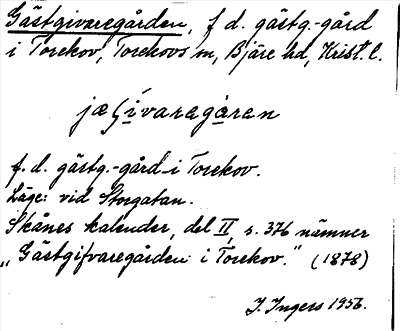 Gästgivaregården, f d. gästg.-gård
i Torekov, Torekovs sn, Bjäre hd, Krist. l.
jæʃivaregåren
f. d. gästg.-gård i Torekov.
Läge: vid Storgatan.
Skånes kalender, del II, s. 376 nämner
„Gästgifvaregården i Torekov." (1878)
J. Ingers 1956.